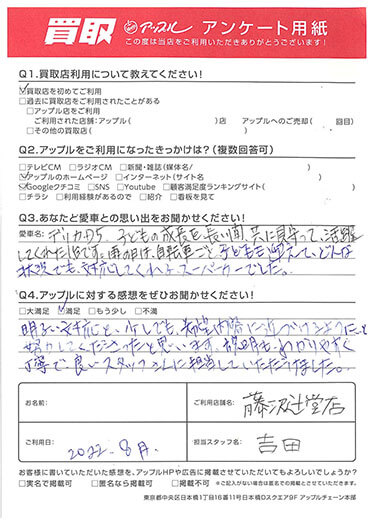 買取 アップル アンケート用紙
この度は当店をご利用いただきありがとうございます!
Q1.買取店利用について教えてください!
☑買取店を初めてご利用
□過去に買取店をご利用されたことがある
□アップル店をご利用
ご利用された店舗:アップル( )店 アップルへのご売却( 回目)
□その他の買取店( )
Q2.アップルをご利用になったきっかけは?(複数回答可)
□テレビCM □ラジオCM □新聞・雑誌(媒体名/ )
☑アップルのホームページ □インターネット(サイト名 )
☑Googleクチコミ □SNS □Youtube □顧客満足度ランキングサイト( )
□チラシ □利用経験があるので □紹介 □看板を見て
Q3.あなたと愛車との思い出をお聞かせください!
愛車名: デリカD5 子どもの成長を長い間、共に見守って、活躍
してくれた1台です。雨の日は、自転車ごと子どもを迎えて、どんな
状況でも、対応してくれる、スーパーカーでした。
Q4.アップルに対する感想をぜひお聞かせください!
□大満足 ☑満足 □もう少し □不満
明るい対応と、少しでも、希望内容に近づけるようにと
努力してくださったと思います。説明も、わかりやすく
丁寧で、良いスタッフさんに担当していただけました。
お名前:
ご利用店舗名: 藤沢辻堂店
ご利用日: 2022. 8月.
担当スタッフ名: 吉田
お客様に書いていただいた感想を、アップルHPや広告に掲載させていただいてもよろしいでしょうか?
□実名で掲載可 □匿名なら掲載可 □掲載不可 ※ご記入がない場合は匿名での掲載とさせていただきます。
東京都中央区日本橋1丁目16番11号日本橋Dスクエア9F アップルチェーン本部